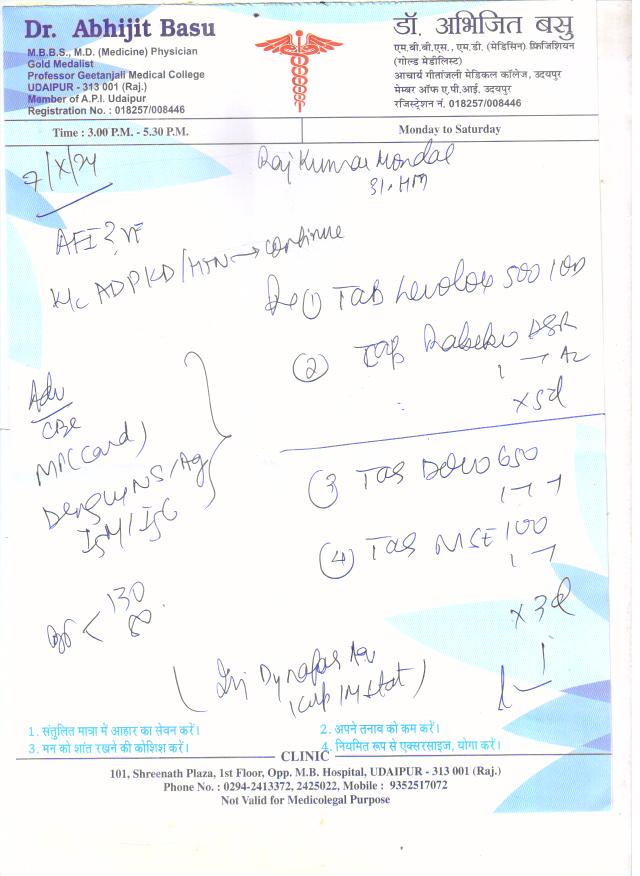 Dr. Abhijit Basu
M.B.B.S., M.D. (Medicine) Physician
Gold Medalist
Professor Geetanjali Medical College
UDAIPUR - 313 001 (Raj.)
Member of A.P.I. Udaipur
Registration No. : 018257/008446
डॉ. अभिजित बसु
एम.बी.बी.एस., एम.डी. (मेडिसिन) फ़िजिशियन
(गोल्ड मेडीलिस्ट)
आचार्य गीतांजली मेडिकल कॉलेज, उदयपुर
मेम्बर ऑफ ए.पी.आई. उदयपुर
रजिस्ट्रेशन नं. 018257/008446
Time : 3.00 P.M. - 5.30 P.M.
Monday to Saturday
7/X/24
Raj Kumar Mondal
31
AFI ?
K/c ADPKD/HTN → continue
(1) TAB Levolox 500 1 OD
(2) Cap DSR
x 5d
Adv
CBC
MP (Card)
Dengue NS1 Ag
IgM/IgG
(3) TAB Dolo 650
(4) TAB 100
x 3d
BP < 130
80
(Inj Dynapar AQ
1 amp IM stat)
1. संतुलित मात्रा में आहार का सेवन करें।
2. अपने तनाव को कम करें।
3. मन को शांत रखने की कोशिश करें।
4. नियमित रूप से एक्सरसाइज, योगा करें।
CLINIC
101, Shreenath Plaza, 1st Floor, Opp. M.B. Hospital, UDAIPUR - 313 001 (Raj.)
Phone No. : 0294-2413372, 2425022, Mobile : 9352517072
Not Valid for Medicolegal Purpose